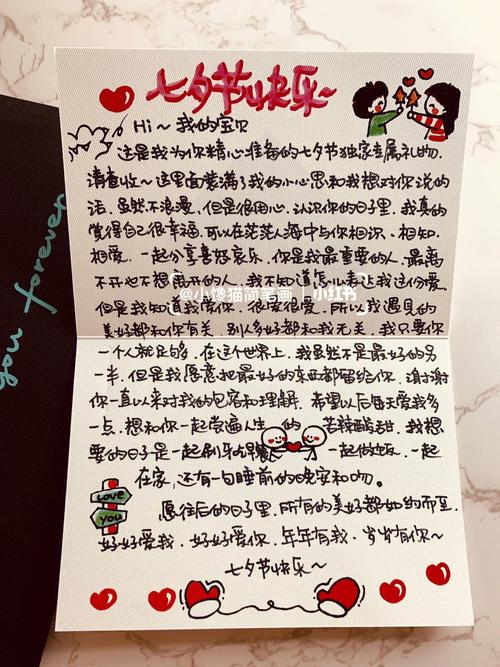 七夕节快乐~
Hi~我的宝贝
这是我为你精心准备的七夕节独家专属礼物.
请查收~这里面装满了我的小心思和我想对你说的
话.虽然不浪漫.但是很用心.认识你的日子里.我真的
觉得自己很幸福.可以在茫茫人海中与你相识.相知.
相爱.一起分享喜好哀乐.你是我最重要的人.最离
不开也不想离开的人.我不知道怎么表达我这份爱.
@小馋猫简笔画 小红书
但是我知道我爱你.很爱很爱.所以我遇见的
美好都和你有关.别人多好都和我无关.我只要你
一个人就足够.在这个世界上.我虽然不是最好的另
一半.但是我愿意把最好的东西都留给你.谢谢
你一直以来对我的包容和理解.希望以后每天爱我多
一点.想和你一起尝遍人生的苦辣酸甜.我想
要的日子是一起刷牙吃早餐一起做饭.一起
在家.还有一句睡前的晚安和吻。
LOVE
YOU
愿往后的日子里.所有的美好都如约而至.
好好爱我.好好爱你.年年有我.岁岁有你~
七夕节快乐~
you forever